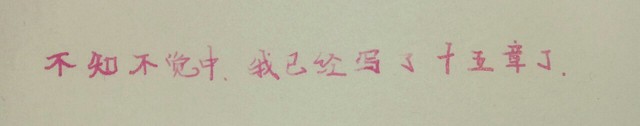 不知不觉中.我已经写了十五章了.